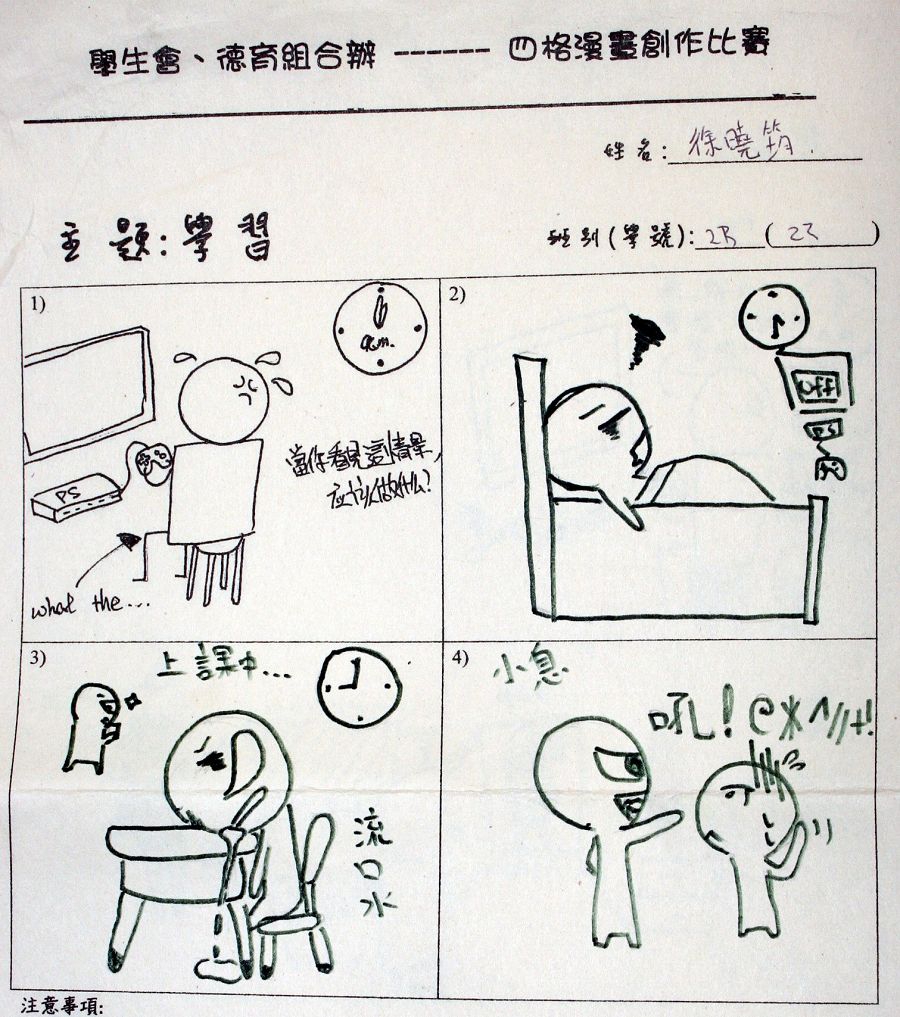 學生會、德育組合辦 ------ 四格漫畫創作比賽
姓名: 徐曉筠
主題:學習
班別(學號): 2B ( 23 )
1)
a.m.
PS
當你看見這情景,
應該做什么?
what the...
2)
off
PS
3)
上課中...
流口水
4)
小息
吼! @*^//+!
注意事項: